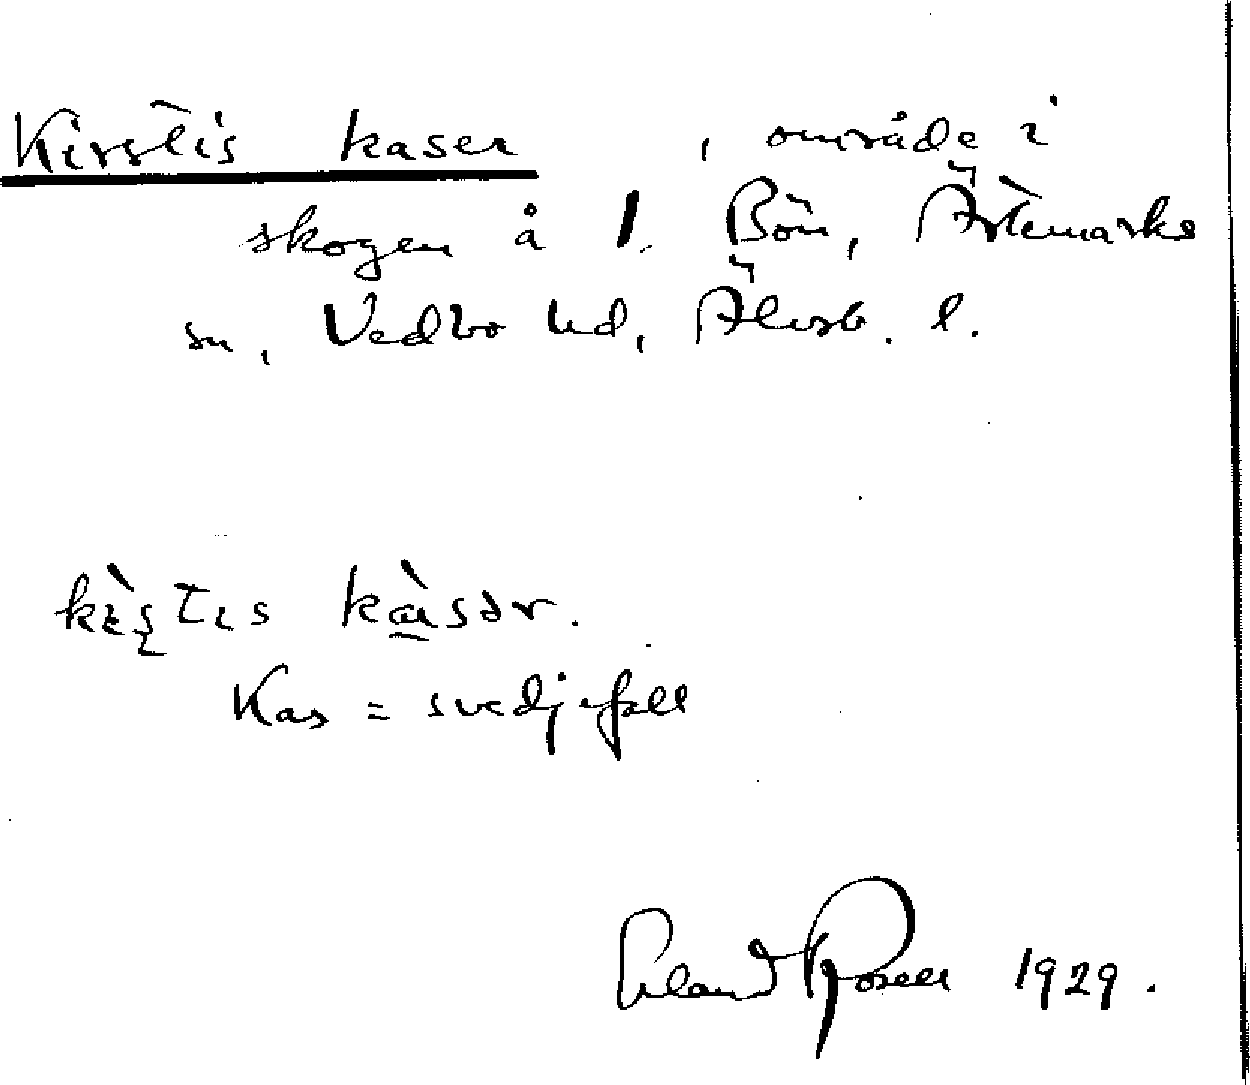 Kirstis kaser , område i
skogen å 1. Bön, Ärtemarks
sn, Vedbo hd, Älvsb. l.
kìstɩs kàsər.
Kas = svedjefall
Erland Rosell 1929.